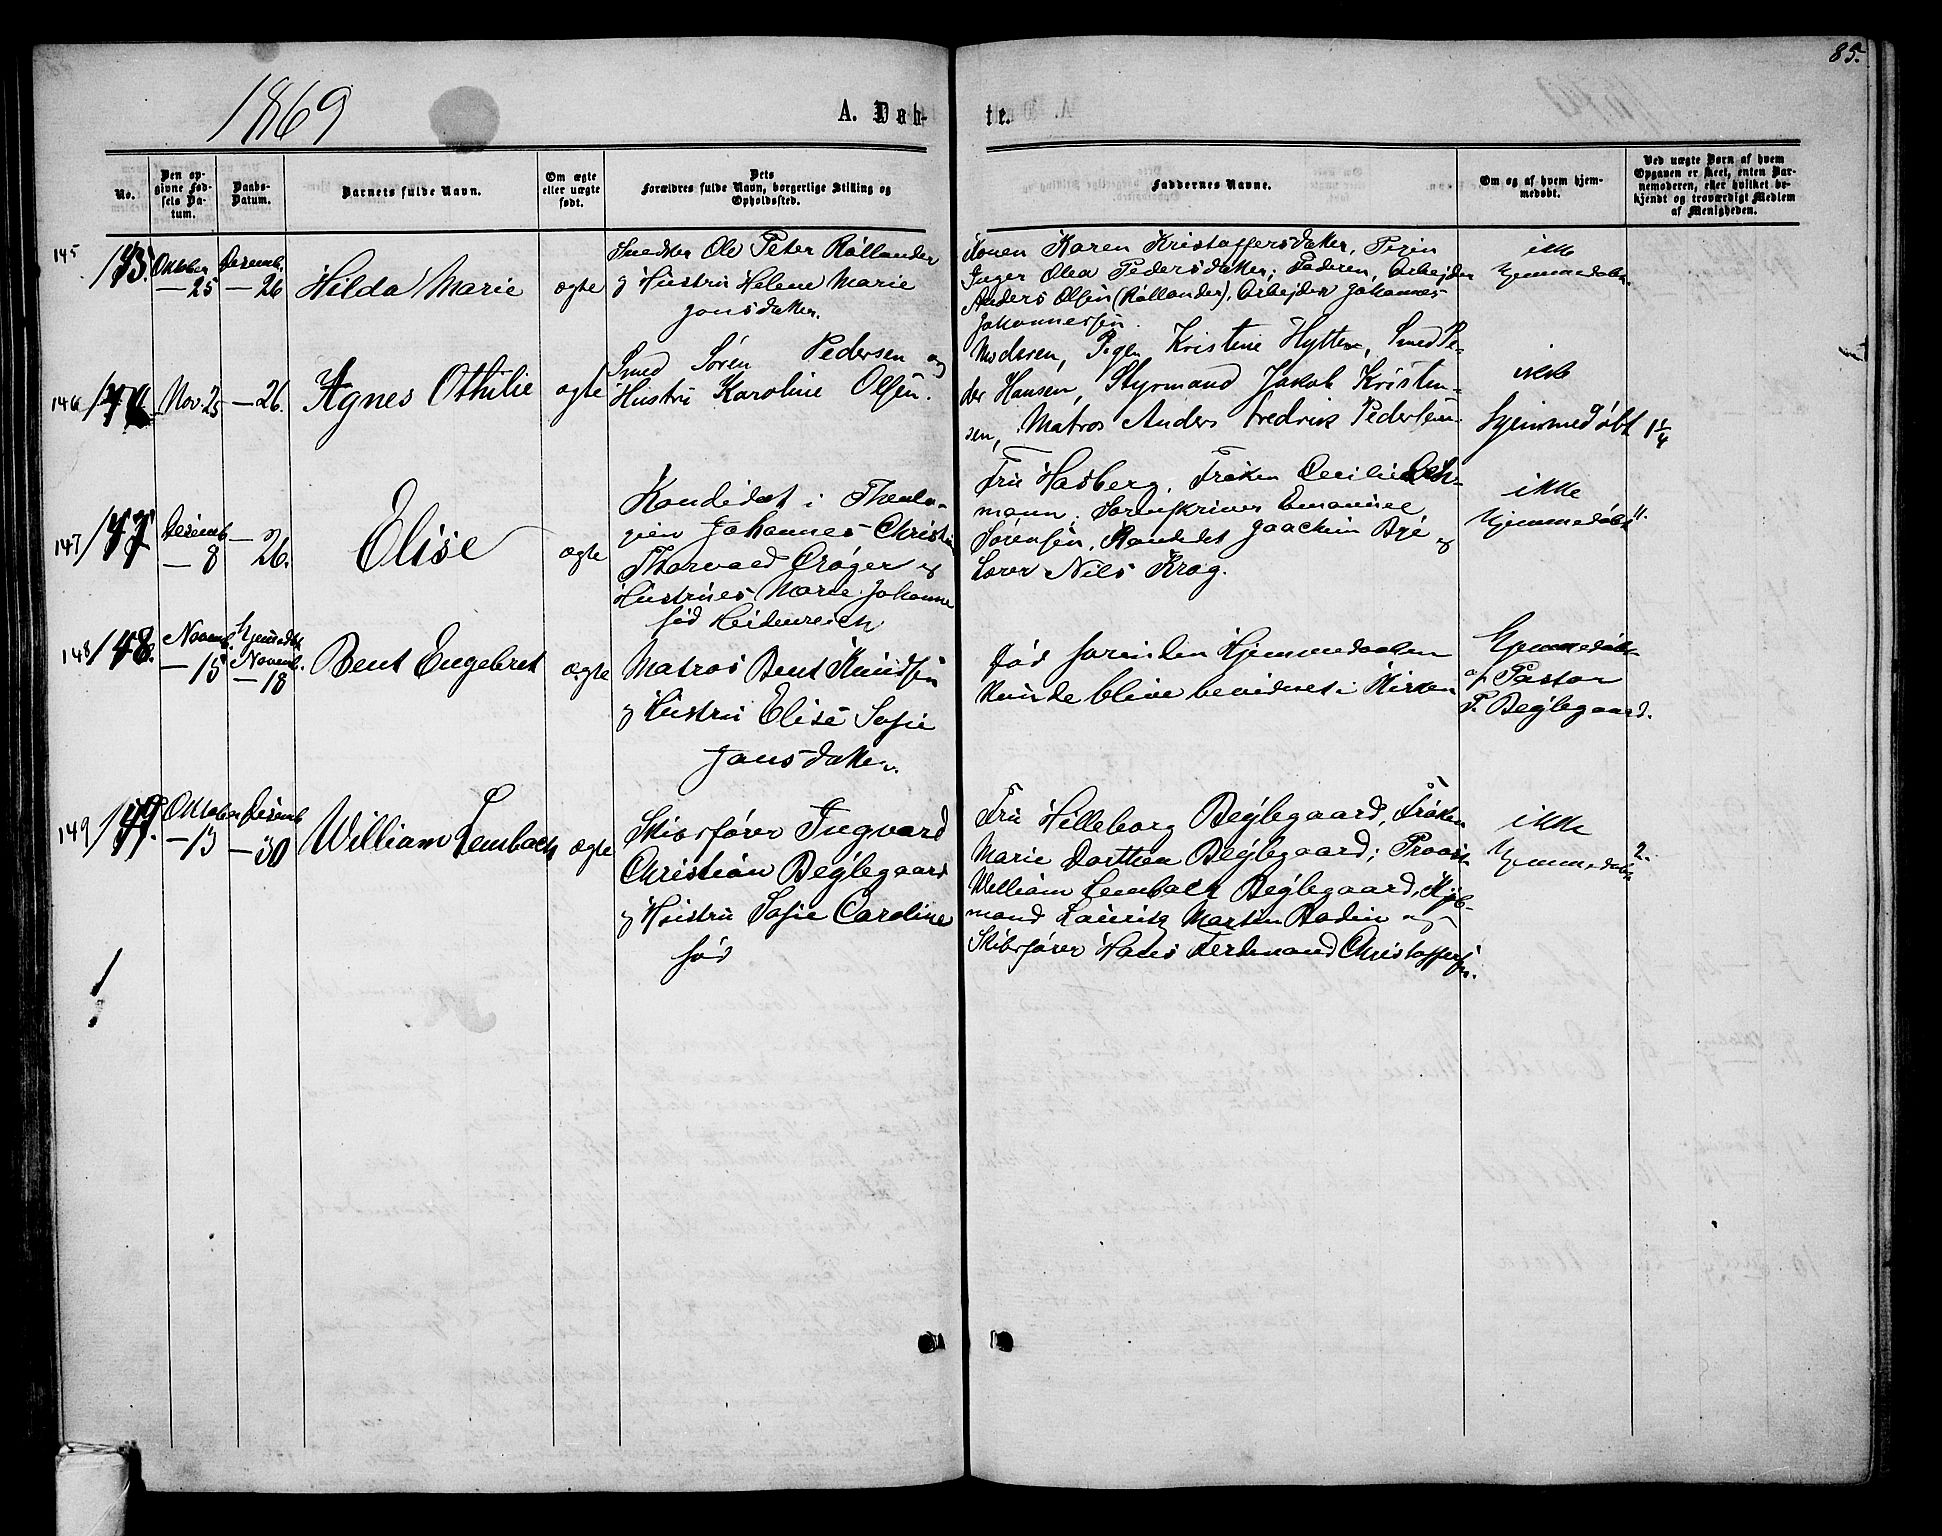 85.
1869
A. Dab-
te.
No.
Den op-
givne Fød-
sels Da-
tum.
Daabs-
Datum.
Barnets fulde Navn.
Om ægte
eller uægte
født.
Dets
Forældres fulde Navn, borgerlige Stilling og
Opholdssted.
Faddernes Navne.
Om og af hvem hjem-
medøbt.
Ved uægte Børn af hvem
Opgaven er skeet, enten Bar-
nemoderen, eller hvilket be-
kjendt og troværdigt Medlem
af Menigheden.
145
Oktober
— 25
Desemb.
— 26
Hilda Marie
ægte
Ole Peter Røllander
og Hustru Helene Marie
Jonsdatter.
Konen Karen Kristoffersdatter, Pigen
Inger Olea Pedersdatter; Faderen, Arbejder
Anders Olsen (Røllander), Arbejder Johannes
Johannessen.
ikke
hjemmedøbt.
146
Nov. 25
— 26.
Agnes Othilie
ægte
Smed Sören Pedersen og
Hustru Karoline Olsen.
Moderen, Pigen Kristine Hytten, Smed Pe-
der Hansen, Styrmand Jakob Kristen-
sen, Matros Anders Fredrik Pedersen
ikke
hjemmedøbt
147
147
Desemb
— 8
— 26.
Elise
ægte
Kandidat i Theolo-
gien Johannes Christian
Thorvald Crøger og
Hustrues Marie Johanne
fød Heidenreich
Fru Hasberg, Frøken Cecilie
mann, Sorenskriver Emanuel
Sørensen, Kandidat Joachim Bye og
Nils Krog.
ikke
hjemmedøbt
148
148.
Novemb.
— 15
Hjemmedøbt
Novemb.
— 18
Bent Engebret
ægte
Matros Bent Knudsen
og Hustru Elise Sofie
Jansdatter.
død forinden Hjemmedaaben
kunde blive bevidnet i Kirken
Hjemmedøbt
af Pastor
P. Bejlegaard.
149
149.
Oktober
— 13
Desemb
— 30
William Lembach
ægte
Skibsfører Ingvard
Christian Bejlegaard
og Hustru Sofie Caroline
fød
Fru Hilleborg Bejlegaard, Frøken
Marie Dorthea Bejlegaard; Provst
William Lembach Bejlegaard, Kjøb-
mand Lauritz Martin Bodin og
Skibsfører Hans Ferdinand Christoffersen.
ikke
hjemmedøbt
2.